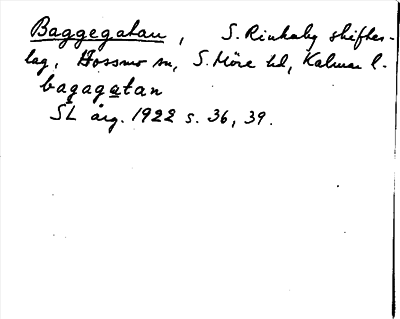 Baggegatan, S. Rinkaby skiftes-
lag, Hossmo sn, S. Möre hd, Kalmar l.
bagagatan
SL årg. 1922 s. 36, 39.